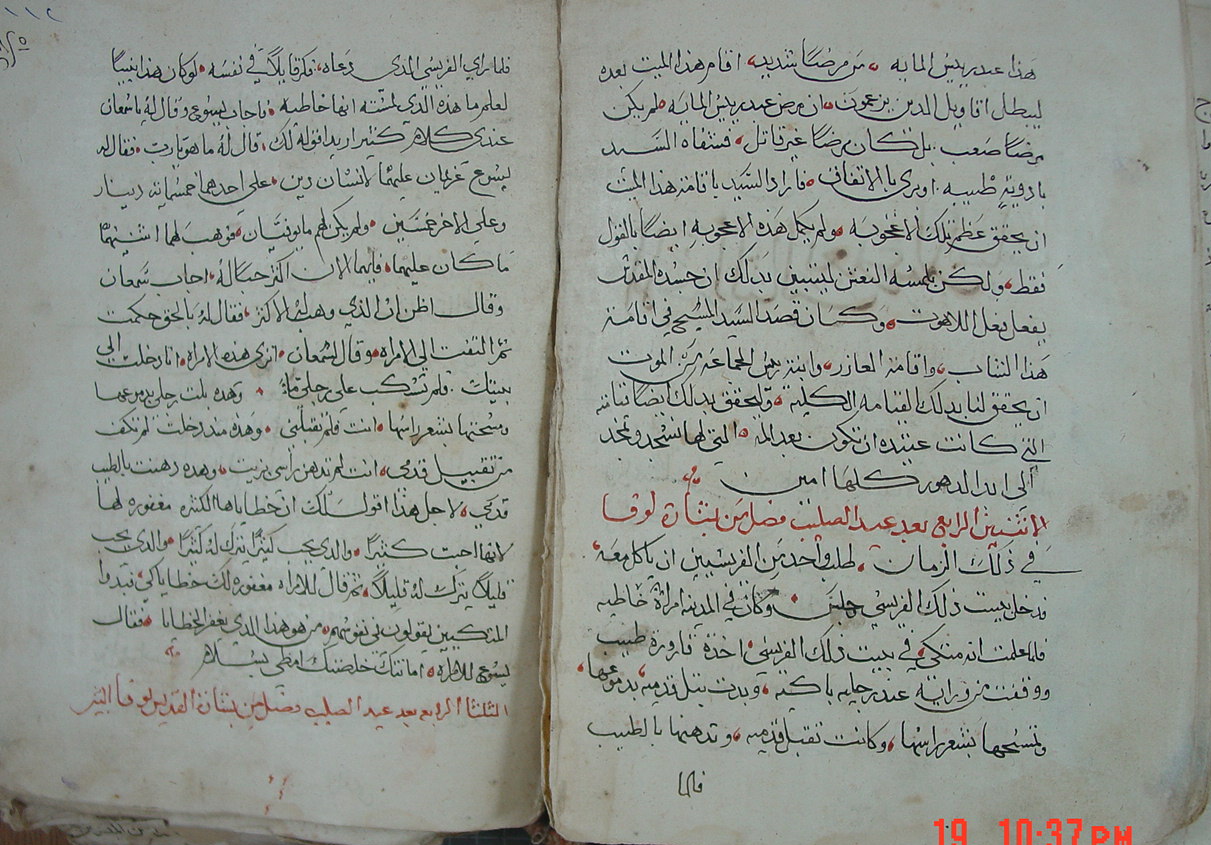 هذا عبد رييس المايه ، مرض مرضًا شديد، اقام هذا الميت بعده
ليبطل اقاويل الدين يزعمون، ان مرض عبد رييس المايه، لم يكن
مرضًا صعب . بل كان مرضًا غير قاتل، فشفاه السيد
بادوية طبيه . اوبرى بالاتفاق، فاراد السيد باقامة هذا الميت
ان يحقق عظم تلك الاعجوبه، ولم يكمل هذه الاعجوبه ايضًا بالقول
فقط، ولكن بلمسه النعش ليتبين بدلك ان جسده المقدس
يفعل بفعل اللاهوت، وكان قصد السيد المسيح في اقامة
هذا الشاب، واقامة العازر، وابنة رييس الجماعه من الموت
ان يحقق لنا بدلك القيامه الكليه، وليحقق بدلك ايضًا
التي كانت عتيده ان تكون بعد المه، التي لها نسجد ونمجد
الى ابد الدهور كلها امين
الاتنين الرابع بعد عيد الصليب فصل من بشارة لوقا
في ذلك الزمان، طلب واحد من الفريسيين ان ياكل معه،
فدخل بيت ذلك الفريسي وجلس، وكان في المدينه امراة خاطيه
فلما علمت انه متكي، في بيت ذلك الفريسي، اخذة قارورة طيب
ووقفت من ورايه عند رجليه باكيه، وبدت تبل قدميه، بدموعها،
وتمسحها بشعر راسها، وكانت تقبل قدميه، وتدهنها بالطيب
فلما
١١٢
فلما راي الفريسي الذي دعاه، فكر قايلًا في نفسه، لو كان هذا نبيًا
لعلم ما هذه الذي لمسته انها خاطيه، فاجاب يسوع وقال له ياسمعان
عندي كلام كتير اريد اقوله لك، قال له ما هو يارب، فقال له
يسوع غريمان عليهما لانسان دين، على احدهما خمسمايه دينار
وعلى الاخر خمسين، ولم يكن لهم ما يوفيان، فوهب لهما اتنينهما
ما كان عليهما، فايهما الان اكثر حبًا له، اجاب سمعان
وقال اظن ان الذي وهب له الاكثر، فقال له بالحق حكمت
تم التفت الي الامراه، وقال لسمعان، اترى هذه الامراه، انا دخلت الى
بيتك . فلم تسكب على رجلي ماءً، وهده بلت رجلي بدموعها
ومسحتها بشعر راسها، انت فلم تقبلني، وهذه مند دخلت لم تكف
من تقبيل قدمي، انت لم تدهن راسي بزيت، وهده دهنت بالطيب
قدمي، لاجل هذا اقول لك ان خطاياها الكثيره مغفوره لها
لانها احبت كثيرًا، والدي يحب كثيرًا يترك له كثيرًا، والدي يحب
قليلًا يترك له قليلًا، تم قال للامراه مغفوره لك خطاياكي، فبدوا
المتكيين يقولون في نفوسهم، من هو هذا الدي يغفر الخطايا، فقال
يسوع للامراه، امانتك خلصتك امظي بسلام
التلتا الرابع بعد عيد الصليب فصل من بشارة القديس لوقا البشير
19 10:37 PM